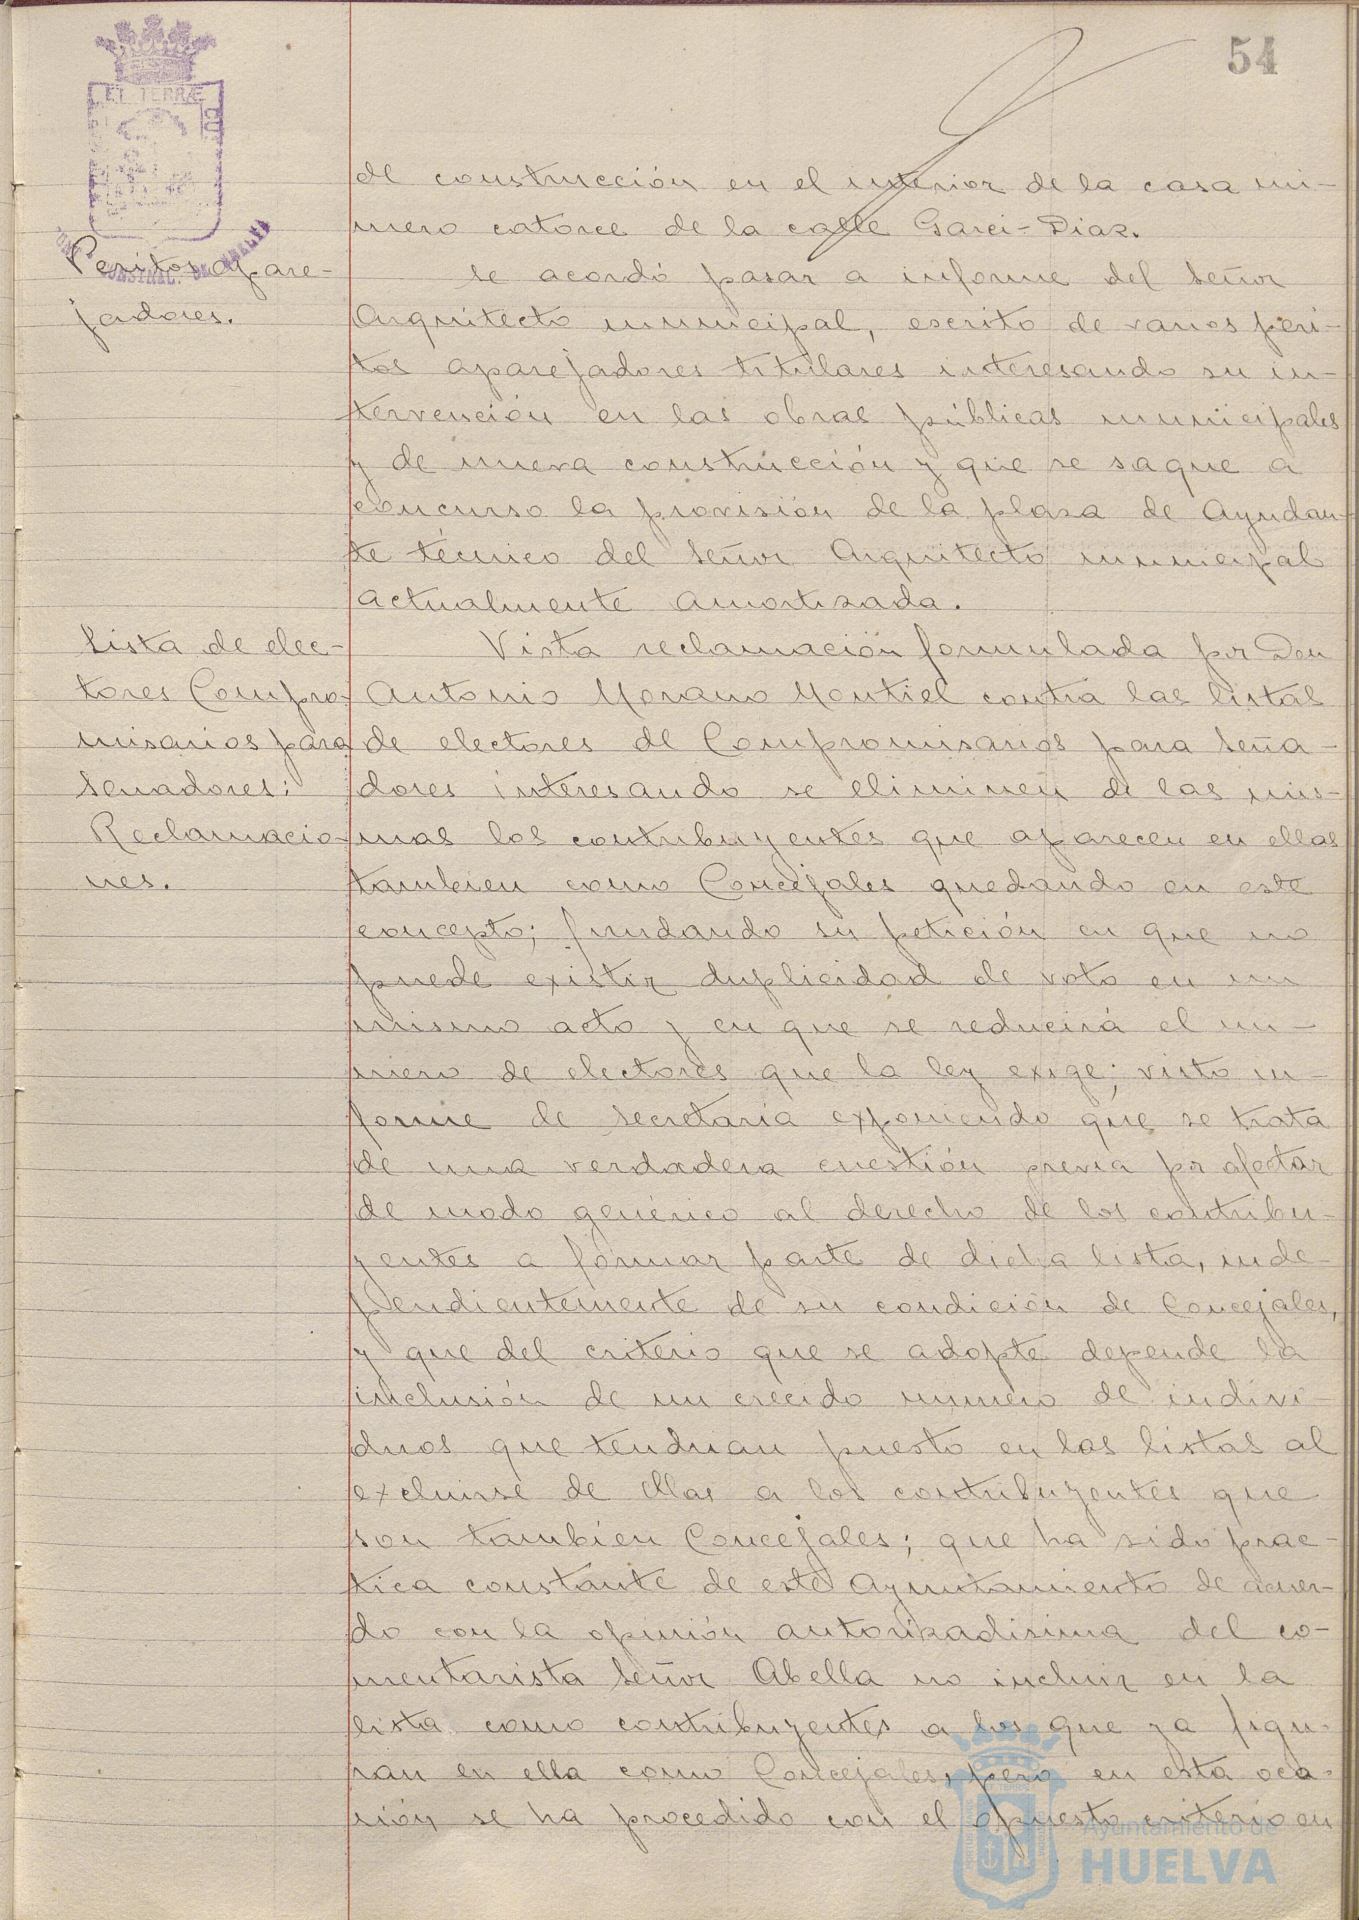 54
de construcción en el interior de la casa nú-
mero catorce de la calle Garci-Díaz.
Peritos apare-
jadores.
se acordó pasar a informe del Señor
Arquitecto municipal, escrito de varios peri-
tos aparejadores titulares interesando su in-
tervención en las obras públicas municipales
y de nueva construcción y que se saque a
concurso la provisión de la plaza de Ayudan-
te técnico del Señor Arquitecto municipal
actualmente amortizada.
Lista de elec-
tores Compro-
misarios para
Senadores:
Reclamacio-
nes.
Vista reclamación formulada por Don
Antonio Morano Montiel contra las listas
de electores de Compromisarios para Seña-
dores interesando se eliminen de las mis-
mas los contribuyentes que aparecen en ellas
tambien como Concejales quedando en este
concepto; fundando su petición en que no
puede existir duplicidad de voto en un
mismo acto y en que se reducirá el nú-
mero de electores que la ley exige; visto in-
forme de Secretaría exponiendo que se trata
de una verdadera cuestión previa por afectar
de modo genérico al derecho de los contribu-
yentes a formar parte de dicha lista, inde-
pendientemente de su condición de Concejales,
y que del criterio que se adopte depende la
inclusión de un crecido número de indivi-
duos que tendrian puesto en las listas al
excluirse de ellas a los contribuyentes que
son tambien Concejales; que ha sido prac-
tica constante de este Ayuntamiento de acuer-
do con la opinión autorizadisima del co-
mentarista Señor Abella no incluir en la
lista como contribuyentes a los que ya figu-
ran en ella como Concejales, pero en esta oca-
sión se ha procedido con el opuesto criterio en
Ayuntamiento de
HUELVA